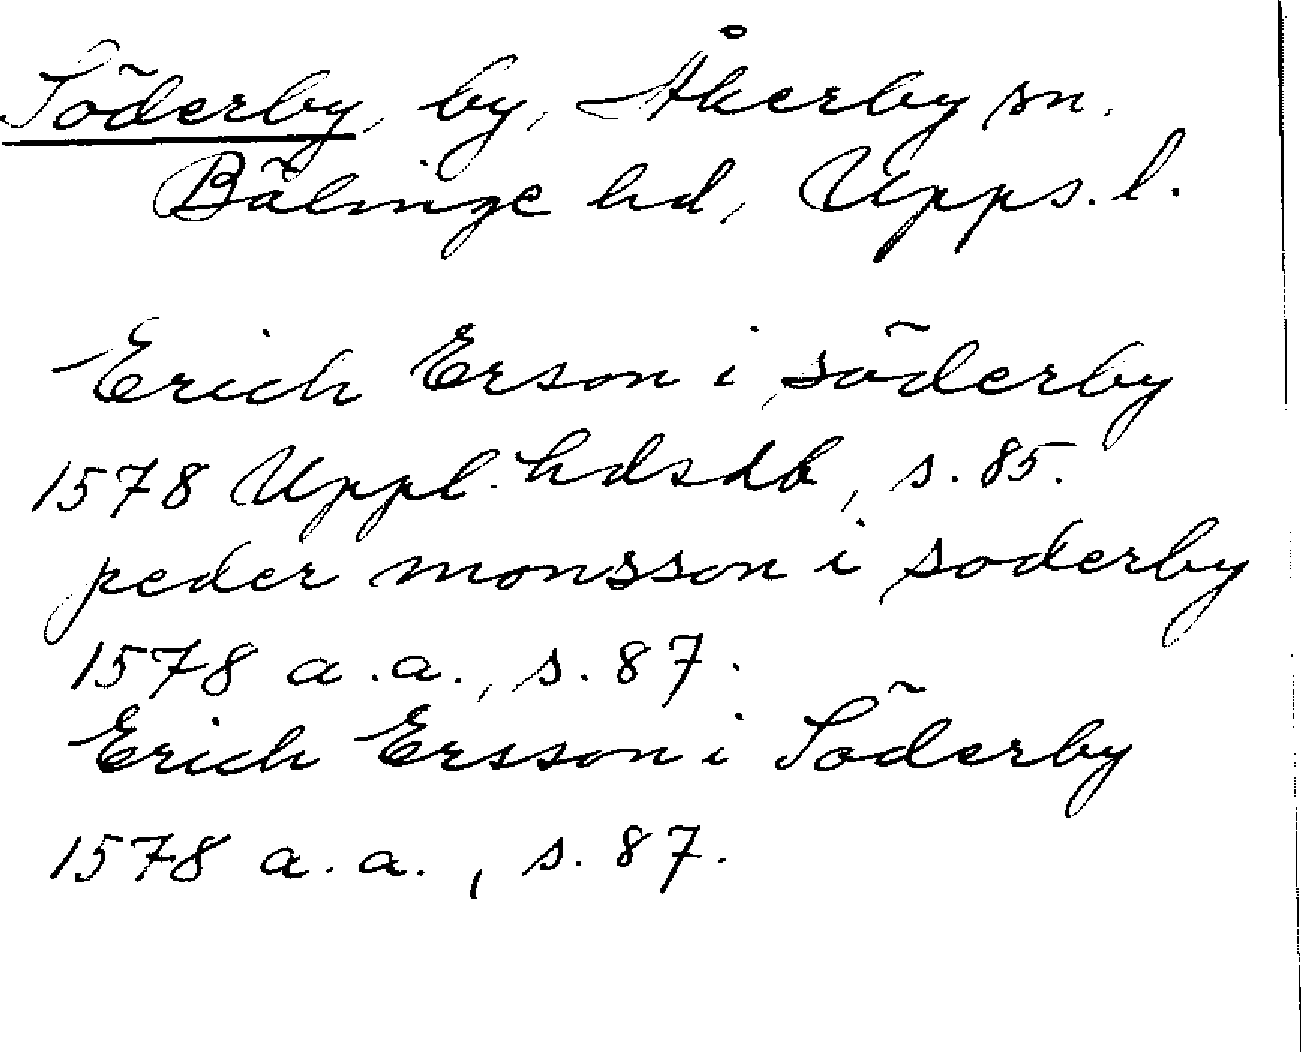 Söderby, by, Åkerby sn.
Bälinge hd, Upps. l.
Erich Erson i söderby
1578 Uppl. hdsdb, s. 85.
peder monsson i soderby
1578 a.a., s. 87.
Erich Ersson i Söderby
1578 a.a., s. 87.